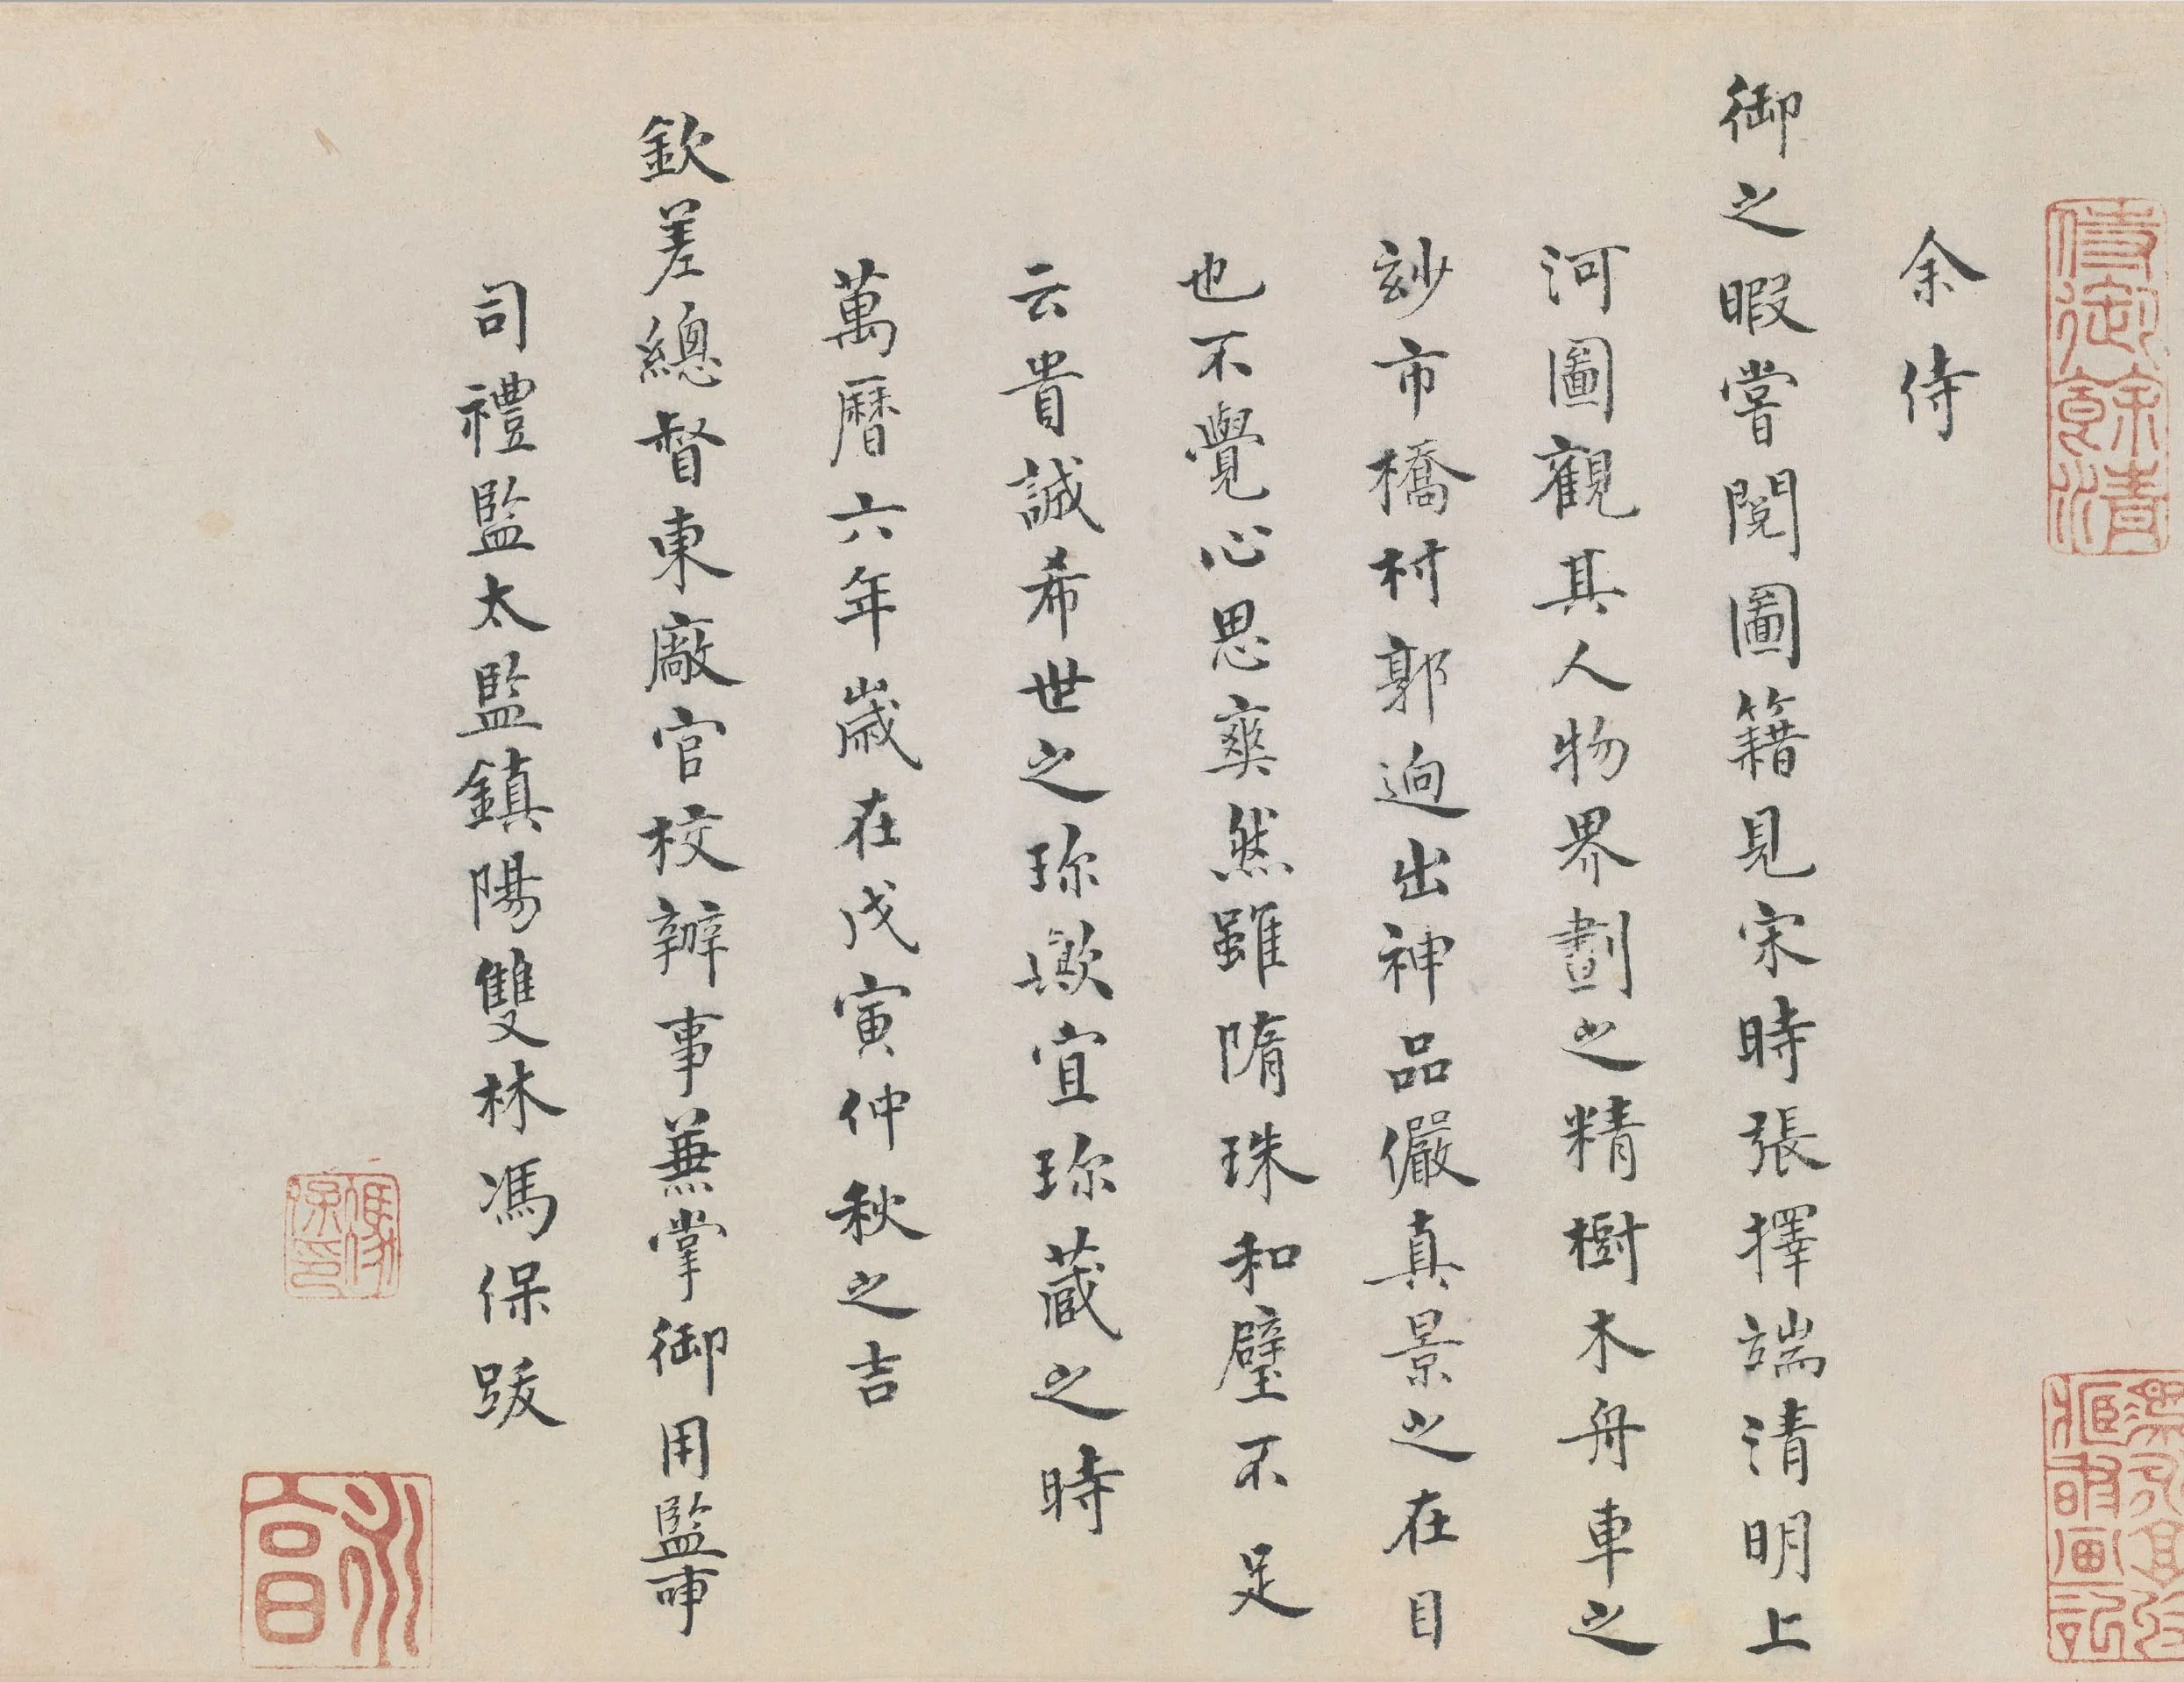 余侍
御之暇嘗閱圖籍見宋時張擇端清明上
河圖觀其人物界劃之精樹木舟車之
玅市橋村郭迥出神品儼真景之在目
也不覺心思爽然雖隋珠和璧不足
云貴誠希世之珎歟宜珎蔵之時
萬曆六年歲在戊寅仲秋之吉
欽差總督東廠官校辦事兼掌御用監事
司禮監太監鎮陽雙林馮保跋
侍御餘清
馮保印